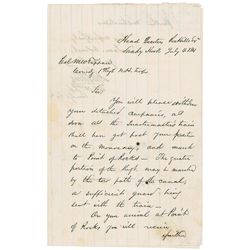 Head Quarters
Sandy Hook July 6 1861
Comdg 1st Regt N.H. Vols
Sir
You will please withdraw
your detached companies, and
soon all the Quartermaster's train
shall have got past your position
on the Monocacy, and march
to Point of Rocks – The greater
portion of the Regt. may be marched
by the tow path of the canal,
a sufficient guard being
sent with the train –
On your arrival at Point
of Rocks you will receive
further